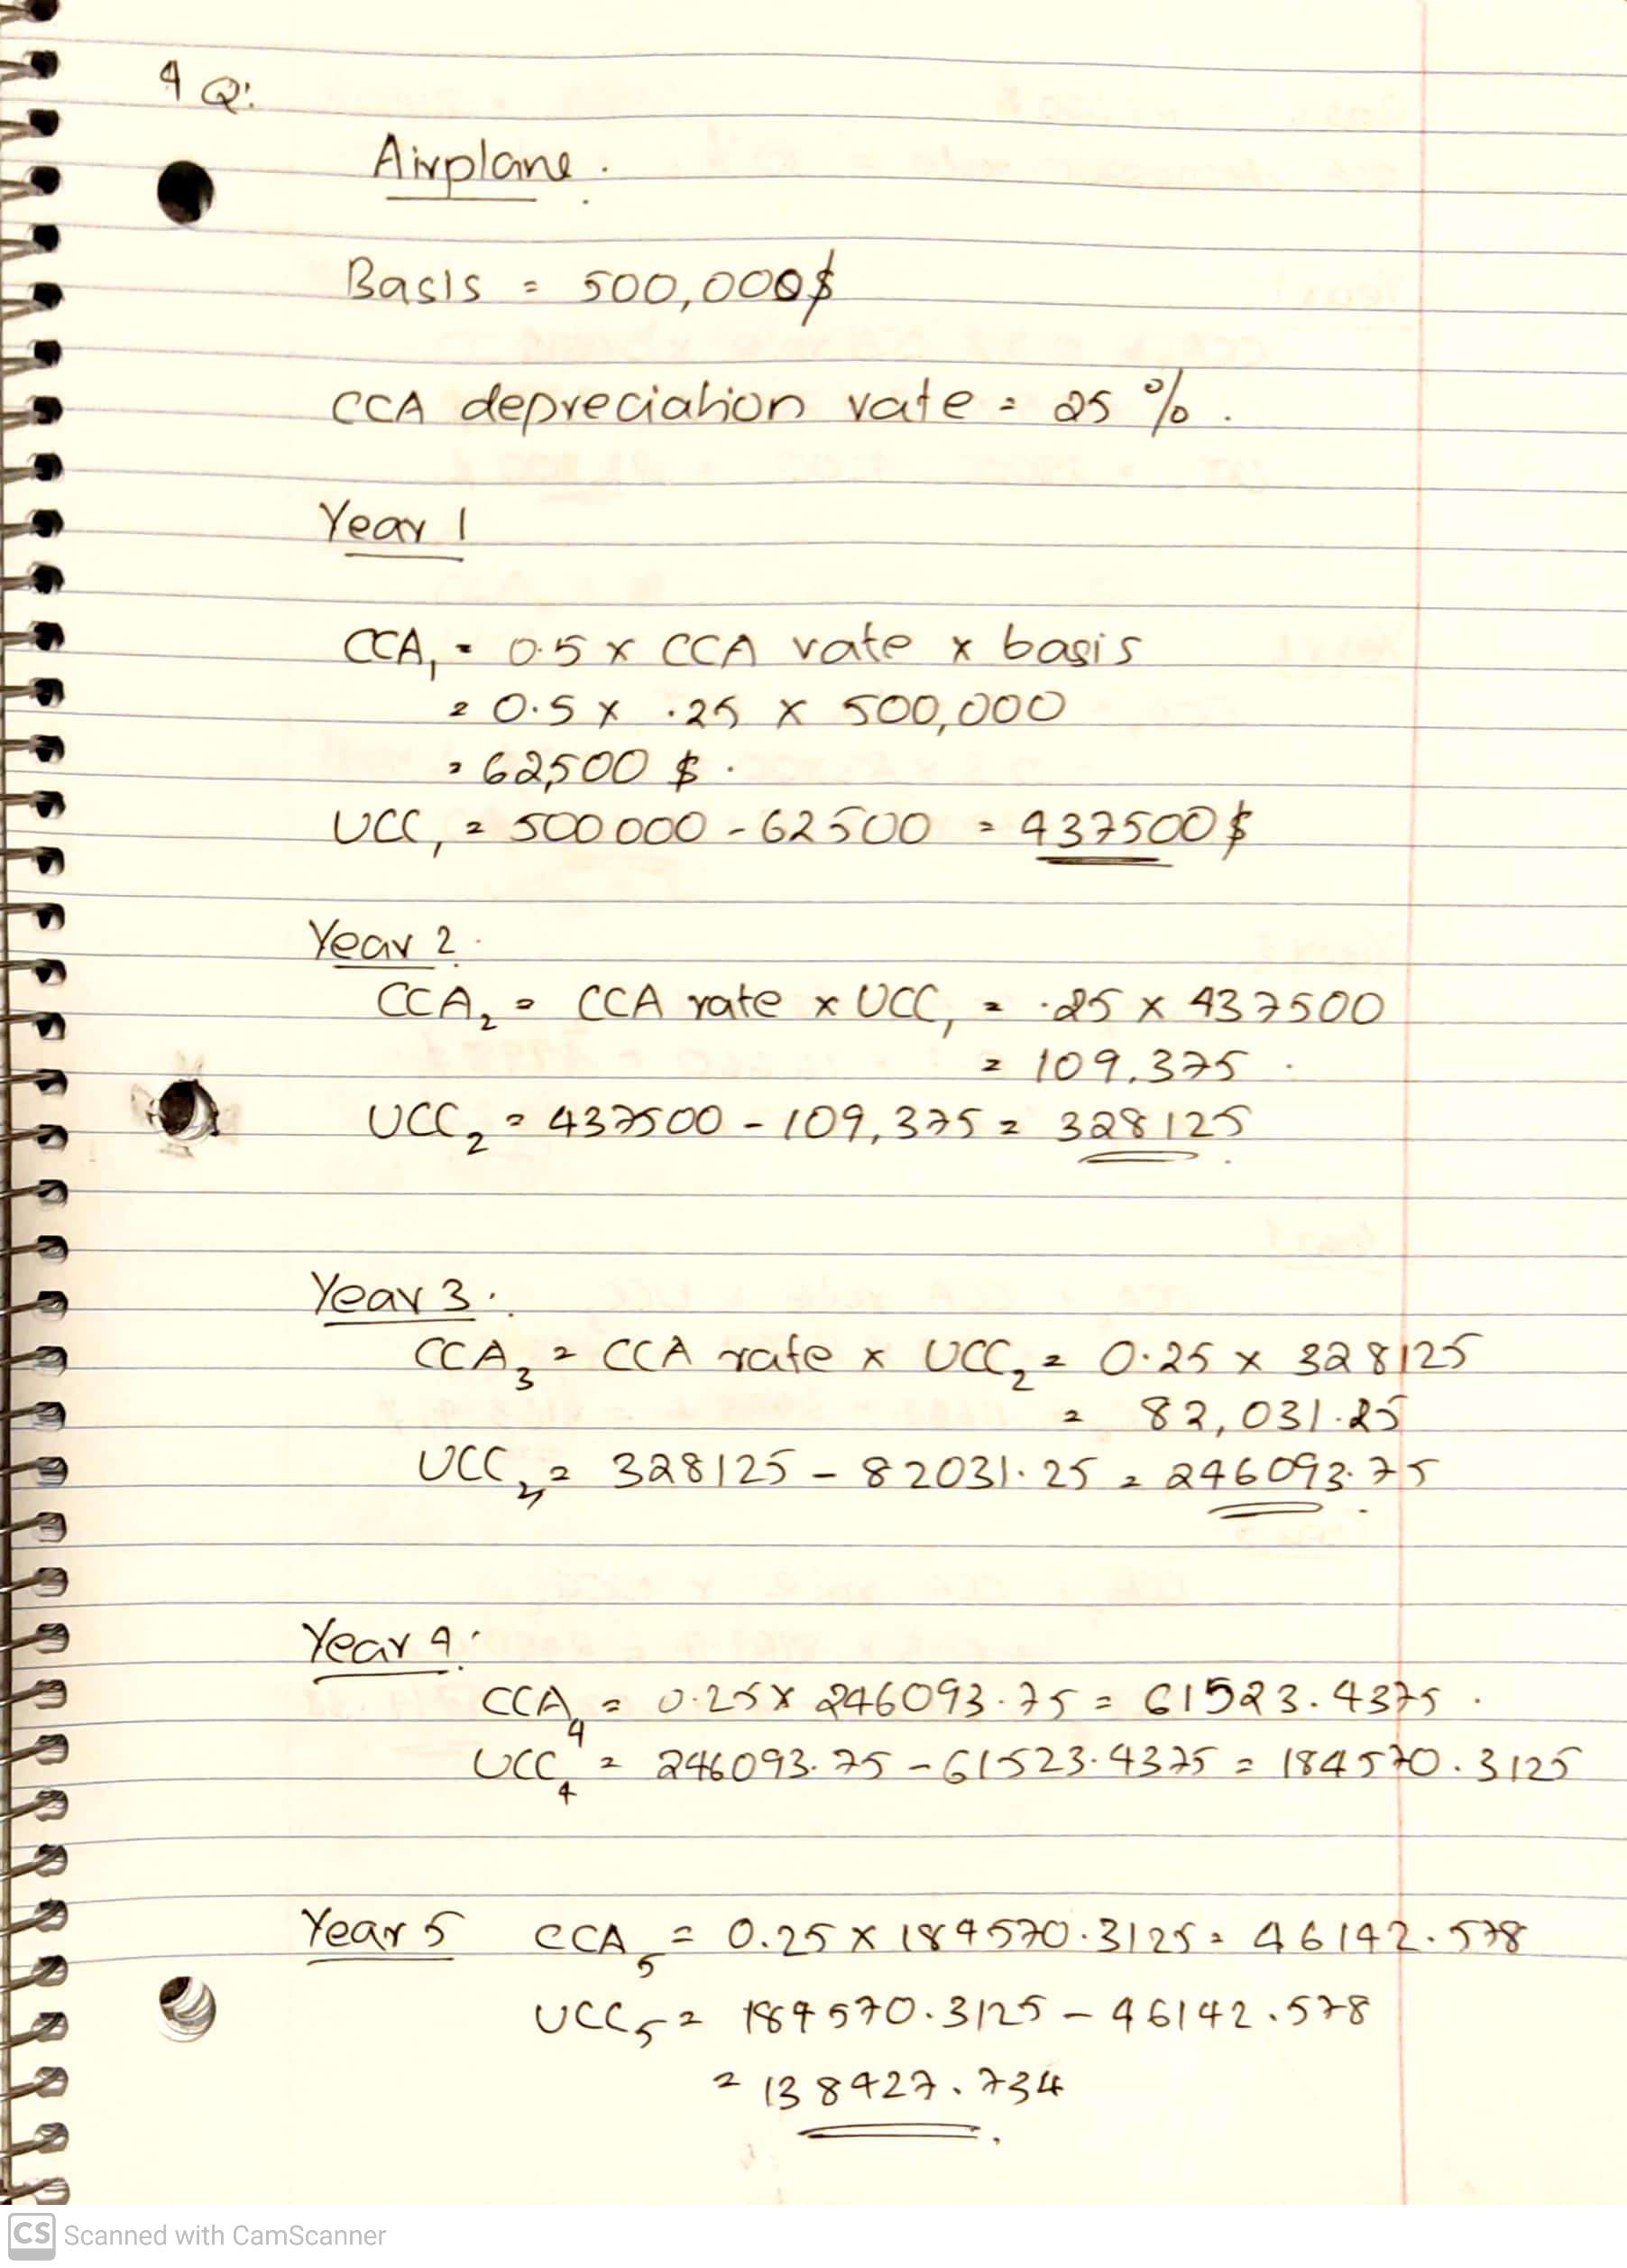 4 Q:
Airplane.
Basis = 500,000$
CCA depreciation rate = 25 %.
Year 1
CCA₁ = 0.5 x CCA rate x basis
= 0.5 x .25 x 500,000
= 62,500 $.
UCC₁ = 500000 - 62500 = 437500$
Year 2.
CCA₂ = CCA rate x UCC₁ = .25 x 437500
= 109,375.
UCC₂ = 437500 - 109,375 = 328125.
Year 3:
CCA₃ = CCA rate x UCC₂ = 0.25 x 328125
= 82,031.25
UCC₃ = 328125 - 82031.25 = 246093.75.
Year 4:
CCA₄ = 0.25 x 246093.75 = 61523.4375.
UCC₄ = 246093.75 - 61523.4375 = 184570.3125
Year 5 CCA₅ = 0.25 x 184570.3125 = 46142.578
UCC₅ = 184570.3125 - 46142.578
= 138427.734.
CS Scanned with CamScanner